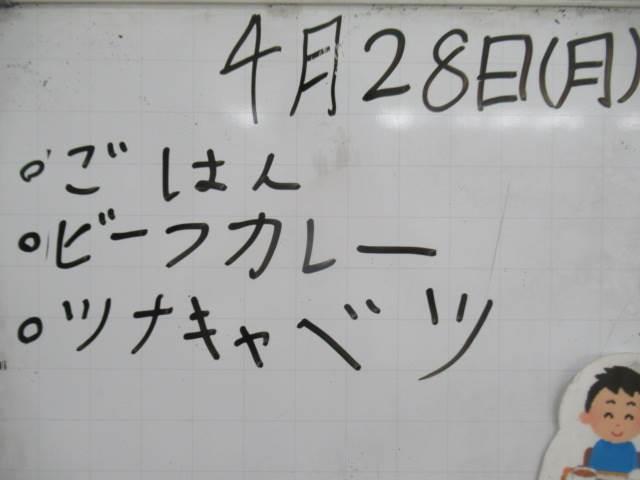 4月28日(月)
○ごはん
○ビーフカレー
○ツナキャベツ